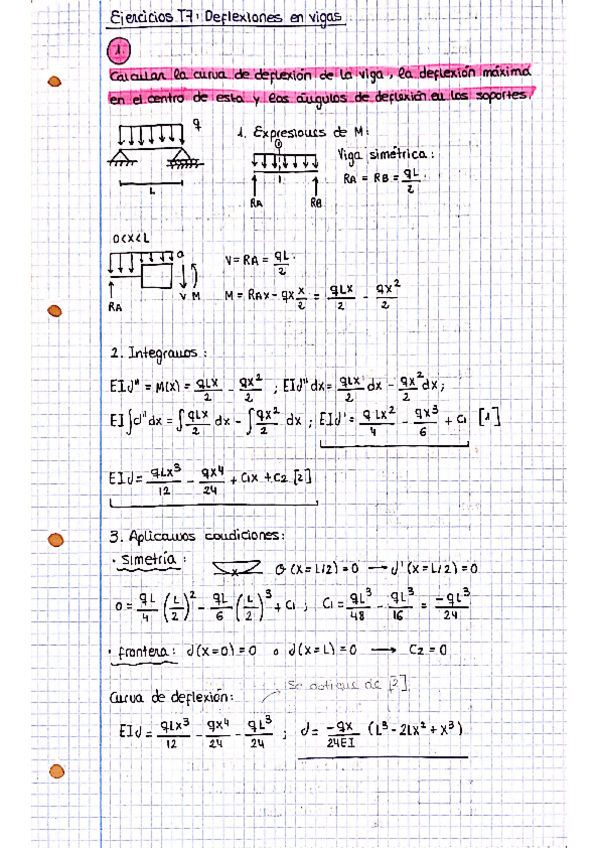 Ejercicios T7: Deflexiones en vigas
1.
Calcular la curva de deflexión de la viga, la deflexión máxima
en el centro de esta y los ángulos de deflexión en los soportes.
q
L
1. Expresiones de M:
1
RA RB
Viga simétrica:
RA = RB = qL/2.
0<x<L
q
RA V M
V = RA = qL/2.
M = RAx - qx x/2 = qLx/2 - qx²/2
2. Integramos:
EId" = M(x) = qLx/2 - qx²/2 ; EId"dx = qLx/2 dx - qx²/2 dx;
EI∫d"dx = ∫qLx/2 dx - ∫qx²/2 dx ; EId' = qLx²/4 - qx³/6 + C1 [1]
EId = qLx³/12 - qx⁴/24 + C1x + C2 [2]
3. Aplicamos condiciones:
· simetría: x θ(x=L/2)=0 → d'(x=L/2)=0
0 = qL/4 (L/2)² - qL/6 (L/2)³ + C1 ; C1 = qL³/48 - qL³/16 = -qL³/24
· frontera: d(x=0)=0 o d(x=L)=0 → C2=0
Se obtiene de [3]
Curva de deflexión:
EId = qLx³/12 - qx⁴/24 - qL³/24 ; d = -qx/24EI (L³-2Lx²+x³)